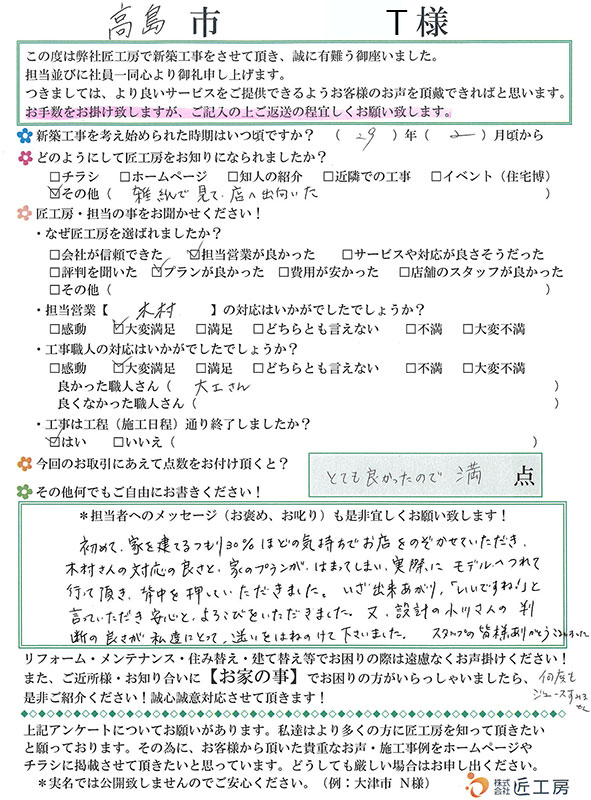 高島 市 T様
この度は弊社匠工房で新築工事をさせて頂き、誠に有難う御座いました。
担当並びに社員一同心より御礼申し上げます。
つきましては、より良いサービスをご提供できるようお客様のお声を頂戴できればと思います。
お手数をお掛け致しますが、ご記入の上ご返送の程宜しくお願い致します。
新築工事を考え始められた時期はいつ頃ですか？ （ 29 ）年（ 2 ）月頃から
どのようにして匠工房をお知りになられましたか？
□チラシ □ホームページ □知人の紹介 □近隣での工事 □イベント（住宅博）
☑その他（ 雑紙で見て、店へ出向いた ）
匠工房・担当の事をお聞かせください！
・なぜ匠工房を選ばれましたか？
□会社が信頼できた ☑担当営業が良かった □サービスや対応が良さそうだった
□評判を聞いた ☑プランが良かった □費用が安かった □店舗のスタッフが良かった
□その他（ ）
・担当営業【 木村 】の対応はいかがでしたでしょうか？
□感動 ☑大変満足 □満足 □どちらとも言えない □不満 □大変不満
・工事職人の対応はいかがでしたでしょうか？
□感動 ☑大変満足 □満足 □どちらとも言えない □不満 □大変不満
良かった職人さん（ 大工さん ）
良くなかった職人さん（ ）
・工事は工程（施工日程）通り終了しましたか？
☑はい □いいえ（ ）
今回のお取引にあえて点数をお付け頂くと？ とても良かったので 満 点
その他何でもご自由にお書きください！
＊担当者へのメッセージ（お褒め、お叱り）も是非宜しくお願い致します！
初めて、家を建てるつもり30％ほどの気持ちでお店をのぞかせていただき、
木村さんの対応の良さと、家のプランが、はまってしまい、実際に モデルへつれて
行って頂き、背中を押していただきました。いざ出来あがり、「いいですね！」と
言っていただき安心と、よろこびをいただきました。又、設計の小川さんの 判
断の良さが私達にとって、迷いをはねのけて下さいました。 スタッフの皆様ありがとうございました
何度も
ジュースすみません
リフォーム・メンテナンス・住み替え・建て替え等でお困りの際は遠慮なくお声掛けください！
また、ご近所様・お知り合いに【お家の事】でお困りの方がいらっしゃいましたら、
是非ご紹介ください！誠心誠意対応させて頂きます！
上記アンケートについてお願いがあります。私達はより多くの方に匠工房を知って頂きたい
と願っております。その為に、お客様から頂いた貴重なお声・施工事例をホームページや
チラシに掲載させて頂きたいと思っています。どうしても厳しい場合はお申し出ください。
＊実名では公開致しませんのでご安心ください。（例：大津市 N様）
株式会社 匠工房